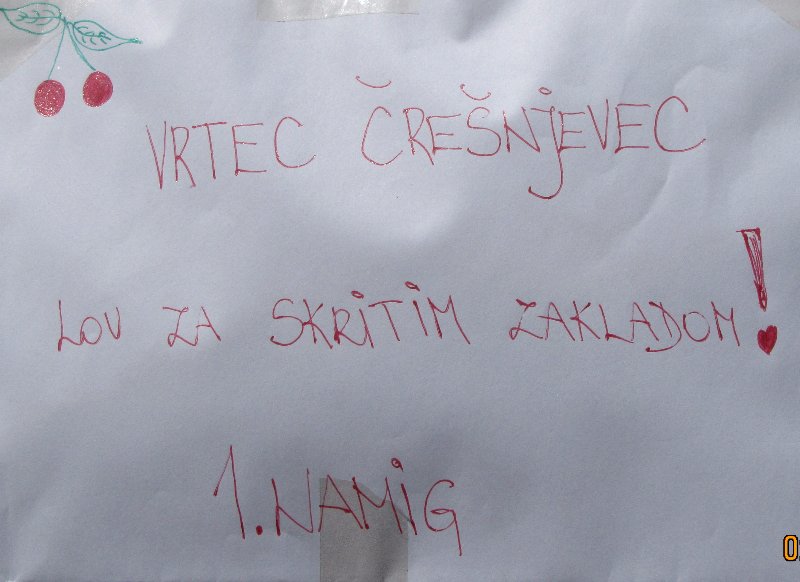 VRTEC ČREŠNJEVEC
LOV ZA SKRITIM ZAKLADOM!
1. NAMIG